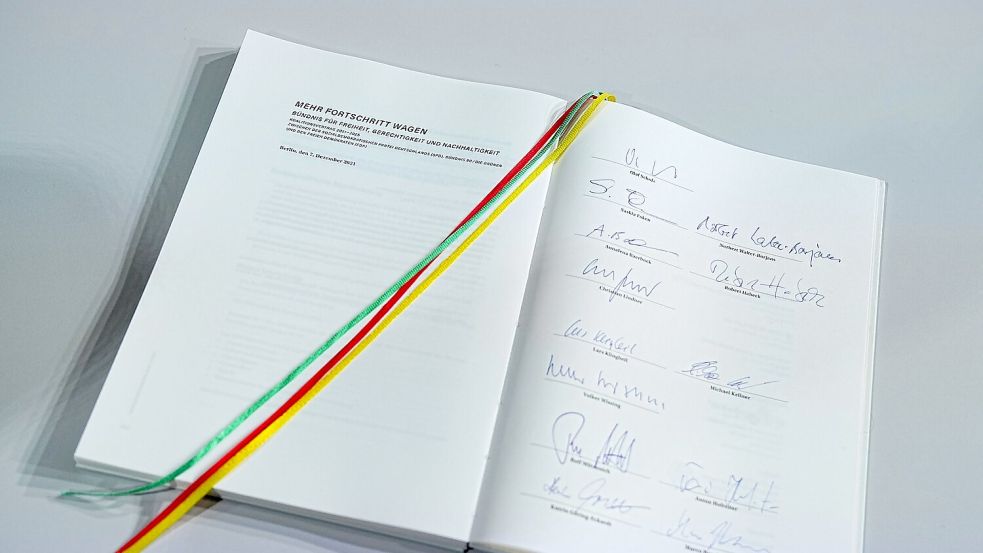 MEHR FORTSCHRITT WAGEN
BÜNDNIS FÜR FREIHEIT, GERECHTIGKEIT UND NACHHALTIGKEIT
KOALITIONSVERTRAG 2021–2025
ZWISCHEN DER SOZIALDEMOKRATISCHEN PARTEI DEUTSCHLANDS (SPD), BÜNDNIS 90 / DIE GRÜNEN
UND DEN FREIEN DEMOKRATEN (FDP)
Berlin, den 7. Dezember 2021
Olaf Scholz
Saskia Esken
Norbert Walter-Borjans
Norbert Walter-Borjans
Annalena Baerbock
Robert Habeck
Robert Habeck
Christian Lindner
Lars Klingbeil
Michael Kellner
Volker Wissing
Rolf Mützenich
Anton Hofreiter
Katrin Göring-Eckardt